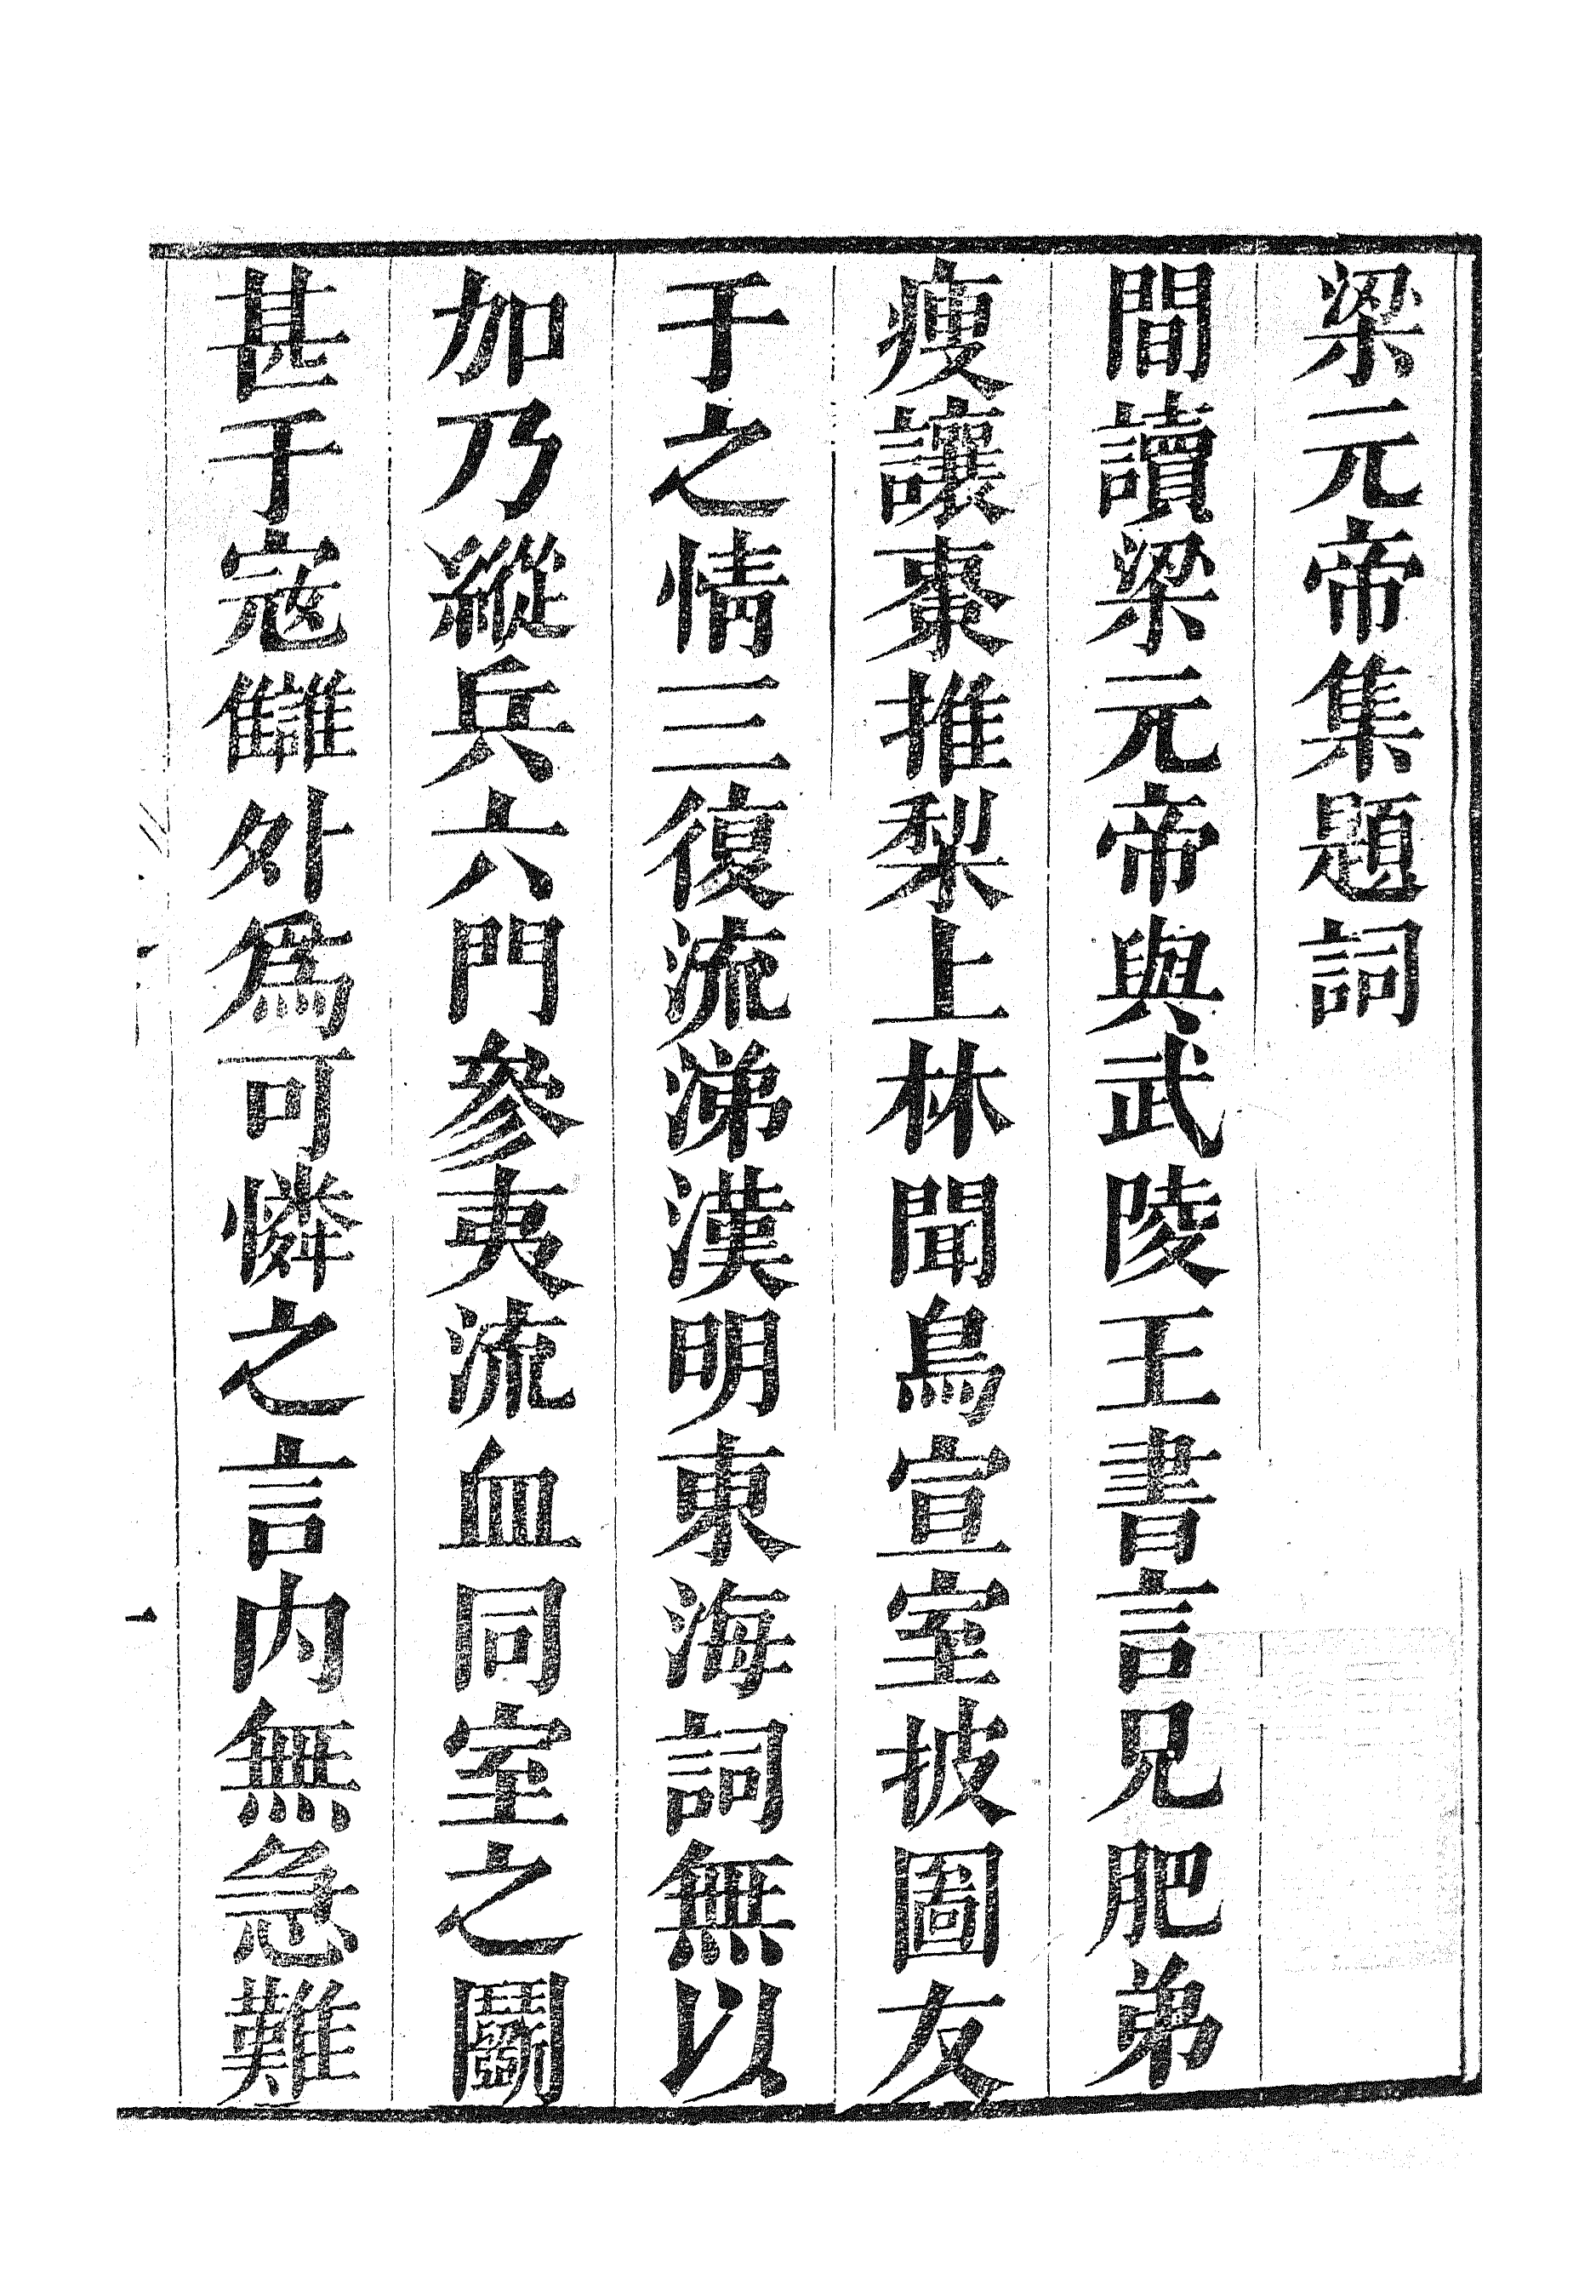 梁元帝集題詞
間讀梁元帝與武陵王書言兄肥弟
瘦讓棗推梨上林聞鳥宣室披圖友
于之情三復流涕漢明東海詞無以
加乃縱兵六門參夷流血同室之鬭
甚于寇讎外爲可憐之言內無急難